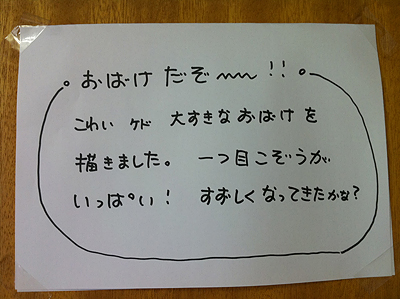 。おばけだぞ〜〜!!。
こわい ケド 大すきなおばけを
描きました。 一つ目こぞうが
いっぱい! すずしくなってきたかな?